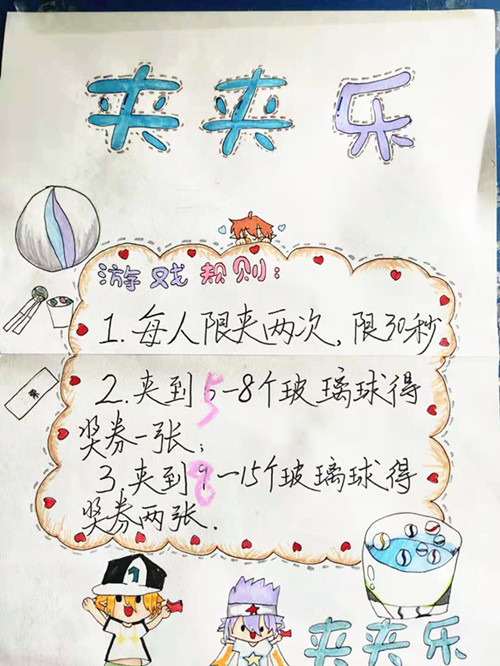 夹夹乐
游戏规则:
1.每人限夹两次,限30秒
2.夹到5-8个玻璃球得
奖券一张;
3.夹到9-15个玻璃球得
奖券两张.
夹夹乐